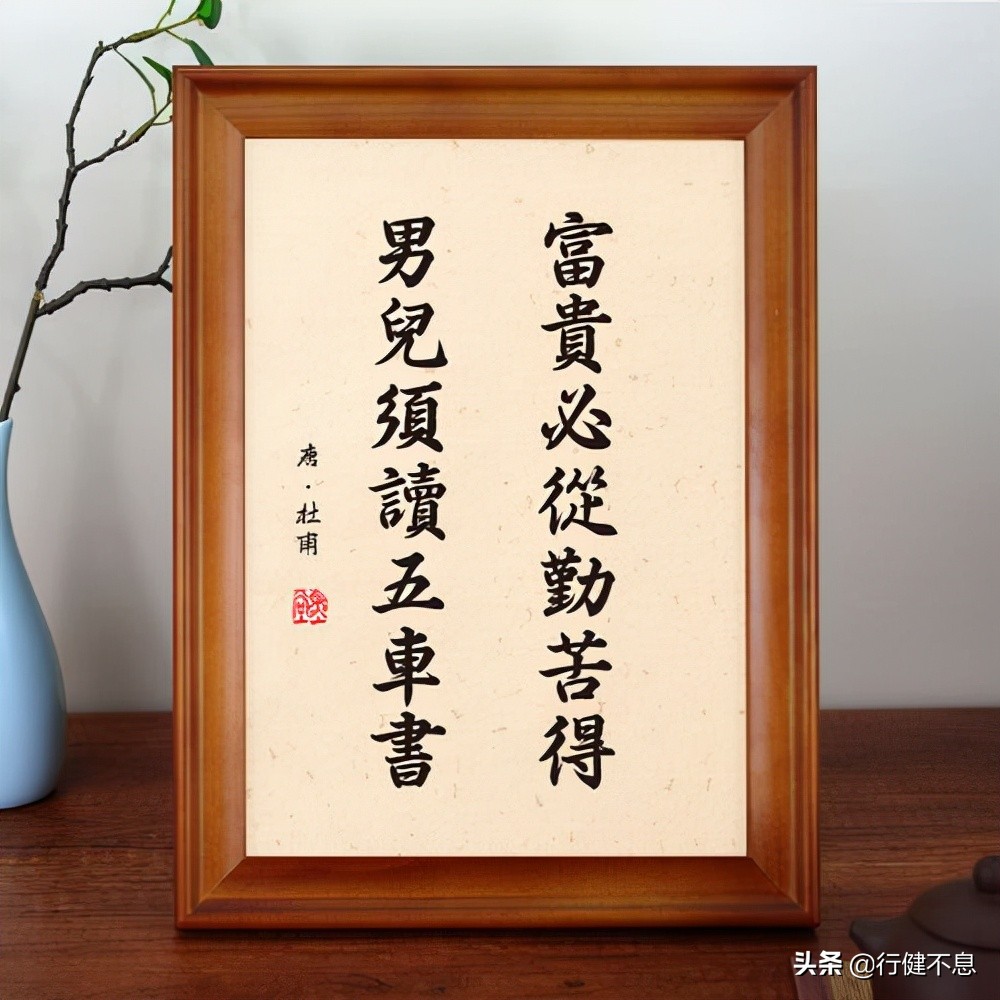 富貴必從勤苦得
男兒須讀五車書
唐·杜甫
头条 @行健不息